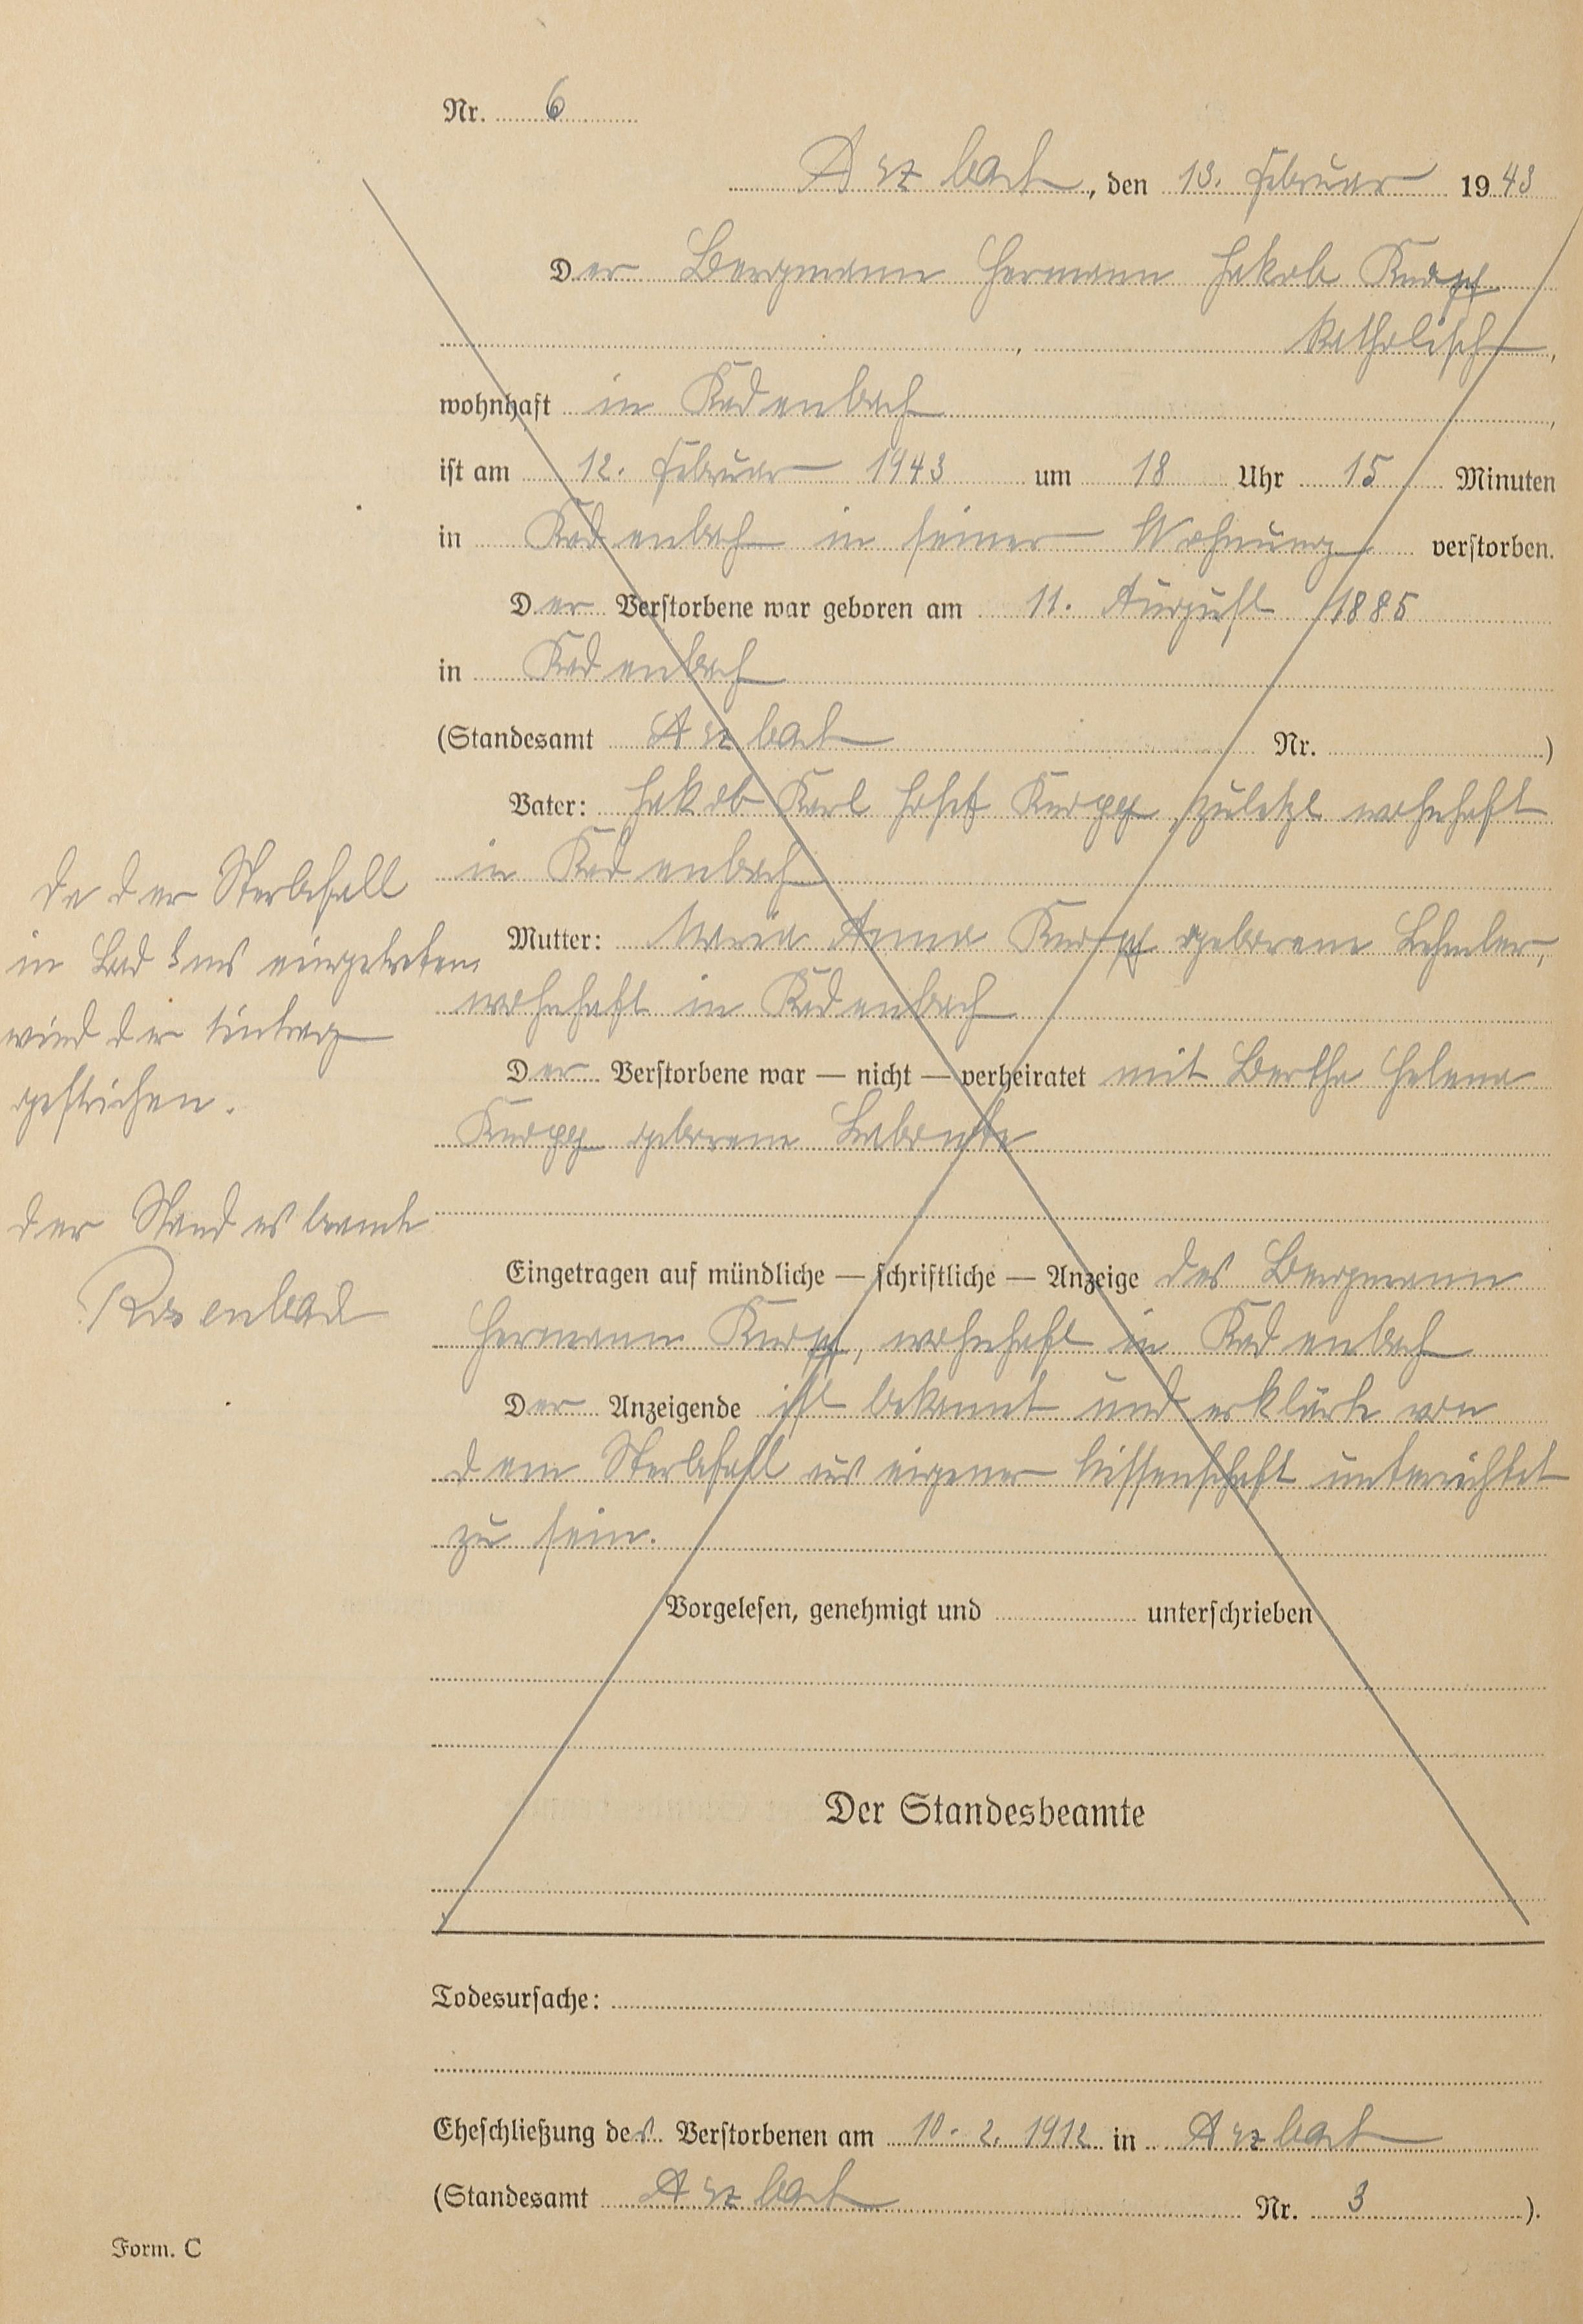 Nr. 6
Arzbach, den 13. Februar 1943
Der Bergmann Hermann Jakob Knopp
katholisch,
wohnhaft in Kadenbach,
ist am 12. Februar 1943 um 18 Uhr 15 Minuten
in Kadenbach in seiner Wohnung verstorben.
Der Verstorbene war geboren am 11. August 1885
in Kadenbach
(Standesamt Arzbach Nr. )
Vater: Jakob Karl Josef Knopp zuletzt wohnhaft
in Kadenbach
Mutter: Maria Anna Knopp geborene Lehmler,
wohnhaft in Kadenbach
Der Verstorbene war — nicht — verheiratet mit Bertha Helena
Knopp geborene
Eingetragen auf mündliche — schriftliche — Anzeige des Bergmann
Hermann Knopp, wohnhaft in Kadenbach
Der Anzeigende ist bekannt und erklärte von
dem Sterbefall aus eigener Wissenschaft unterrichtet
zu sein.
Vorgelesen, genehmigt und unterschrieben
Der Standesbeamte
Todesursache:
Eheschließung des Verstorbenen am 10. 2. 1912 in Arzbach
(Standesamt Arzbach Nr. 3 ).
Form. C
Da der Sterbefall
in Bad Ems eingetreten
wird der Eintrag
gestrichen.
Der Standesbeamte